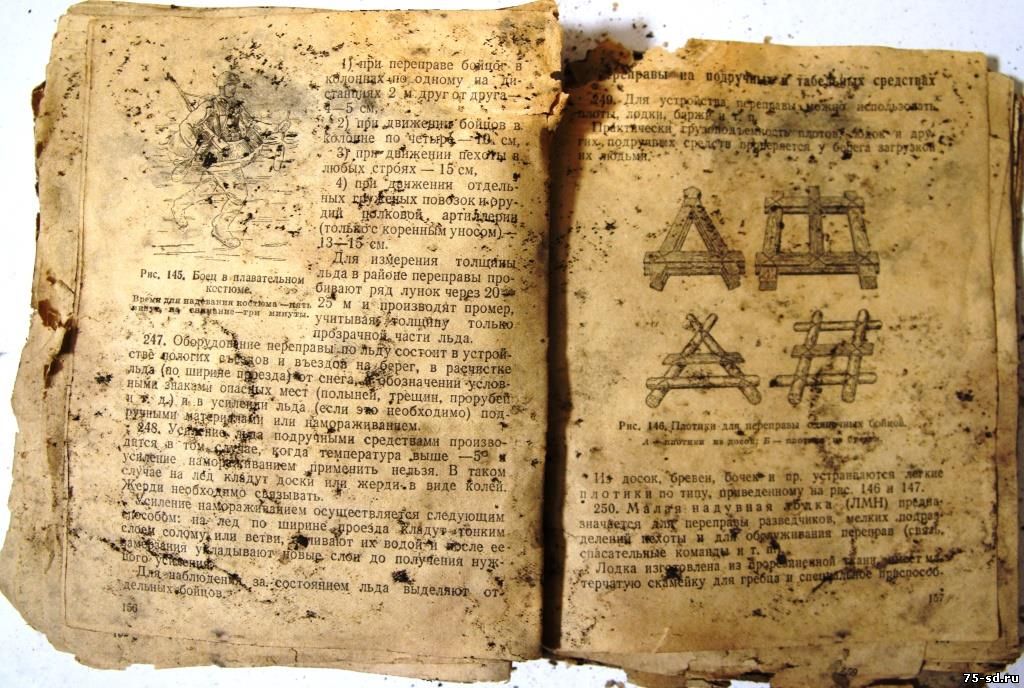 1) при переправе бойцов в
колоннах по одному на ди-
станциях 2 м друг от друга —
4—5 см,
2) при движении бойцов в
колонне по четыре — 10 см,
3) при движении пехоты в
любых строях — 15 см,
4) при движении отдель-
ных груженых повозок и ору-
дий полковой артиллерии
(только с коренным уносом) —
13—15 см.
Для измерения толщины
льда в районе переправы про-
бивают ряд лунок через 20—
25 м и производят промер,
учитывая толщину только
прозрачной части льда.
Рис. 145. Боец в плавательном
костюме.
Время для надевания костюма — пять
минут, на снимание — три минуты.
247. Оборудование переправы по льду состоит в устрой-
стве пологих съездов и въездов на берег, в расчистке
льда (по ширине проезда) от снега, в обозначений услов-
ными знаками опасных мест (полыней, трещин, прорубей
и т. д.) и в усилении льда (если это необходимо) под-
ручными материалами или намораживанием.
248. Усиление льда подручными средствами произво-
дится в том случае, когда температура выше —5° и
усиление намораживанием применить нельзя. В таком
случае на лед кладут доски или жерди в виде колей.
Жерди необходимо связывать.
Усиление намораживанием осуществляется следующим
способом: на лед по ширине проезда кладут тонким
слоем солому или ветви, поливают их водой и после ее
замерзания укладывают новые слои до получения нуж-
ного усиления.
Для наблюдения за состоянием льда выделяют от-
дельных бойцов.
156
Переправы на подручных и табельных средствах
249. Для устройства переправы можно использовать
плоты, лодки, баржи и т. п.
Практически грузоподъемность плотов, лодок и дру-
гих подручных средств проверяется у берега загрузкой
их людьми.
Рис. 146. Плотики для переправы одиночных бойцов.
А — плотики из досок; Б — плотики из
Из досок, бревен, бочек и пр. устраиваются легкие
плотики по типу, приведенному на рис. 146 и 147.
250. Малая надувная лодка (ЛМН) предна-
значается для переправы разведчиков, мелких подраз-
делений пехоты и для обслуживания переправ (связь,
спасательные команды и т. п.
Лодка изготовлена из прорезиненной ткани, имеет ма-
терчатую скамейку для гребца и специальное приспособ-
157
75-sd.ru